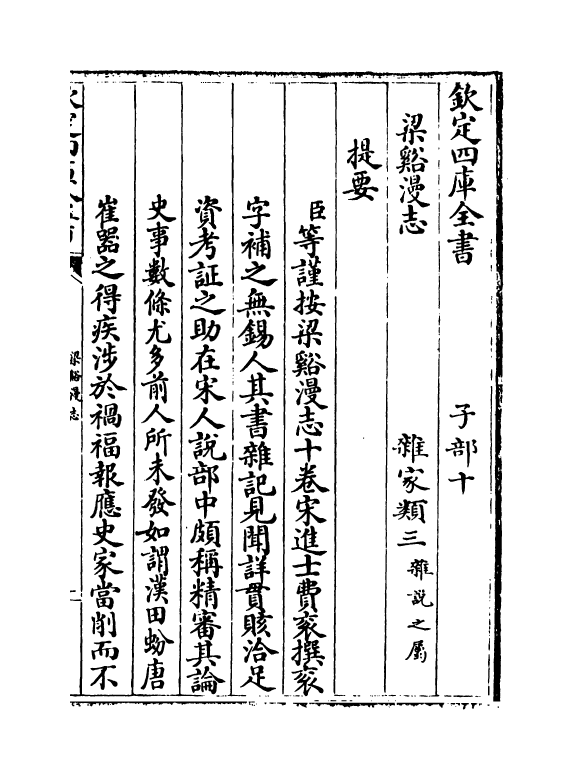 欽定四庫全書　子部十
梁谿漫志　雜家類三雜說之屬
提要
臣等謹按梁谿漫志十卷宋進士費衮撰衮
字補之無錫人其書雜記見聞詳貫賅洽足
資考証之助在宋人說部中頗稱精審其論
史事數條尤多前人所未發如謂漢田蚡唐
崔器之得疾涉於禍福報應史家當削而不
梁谿漫志